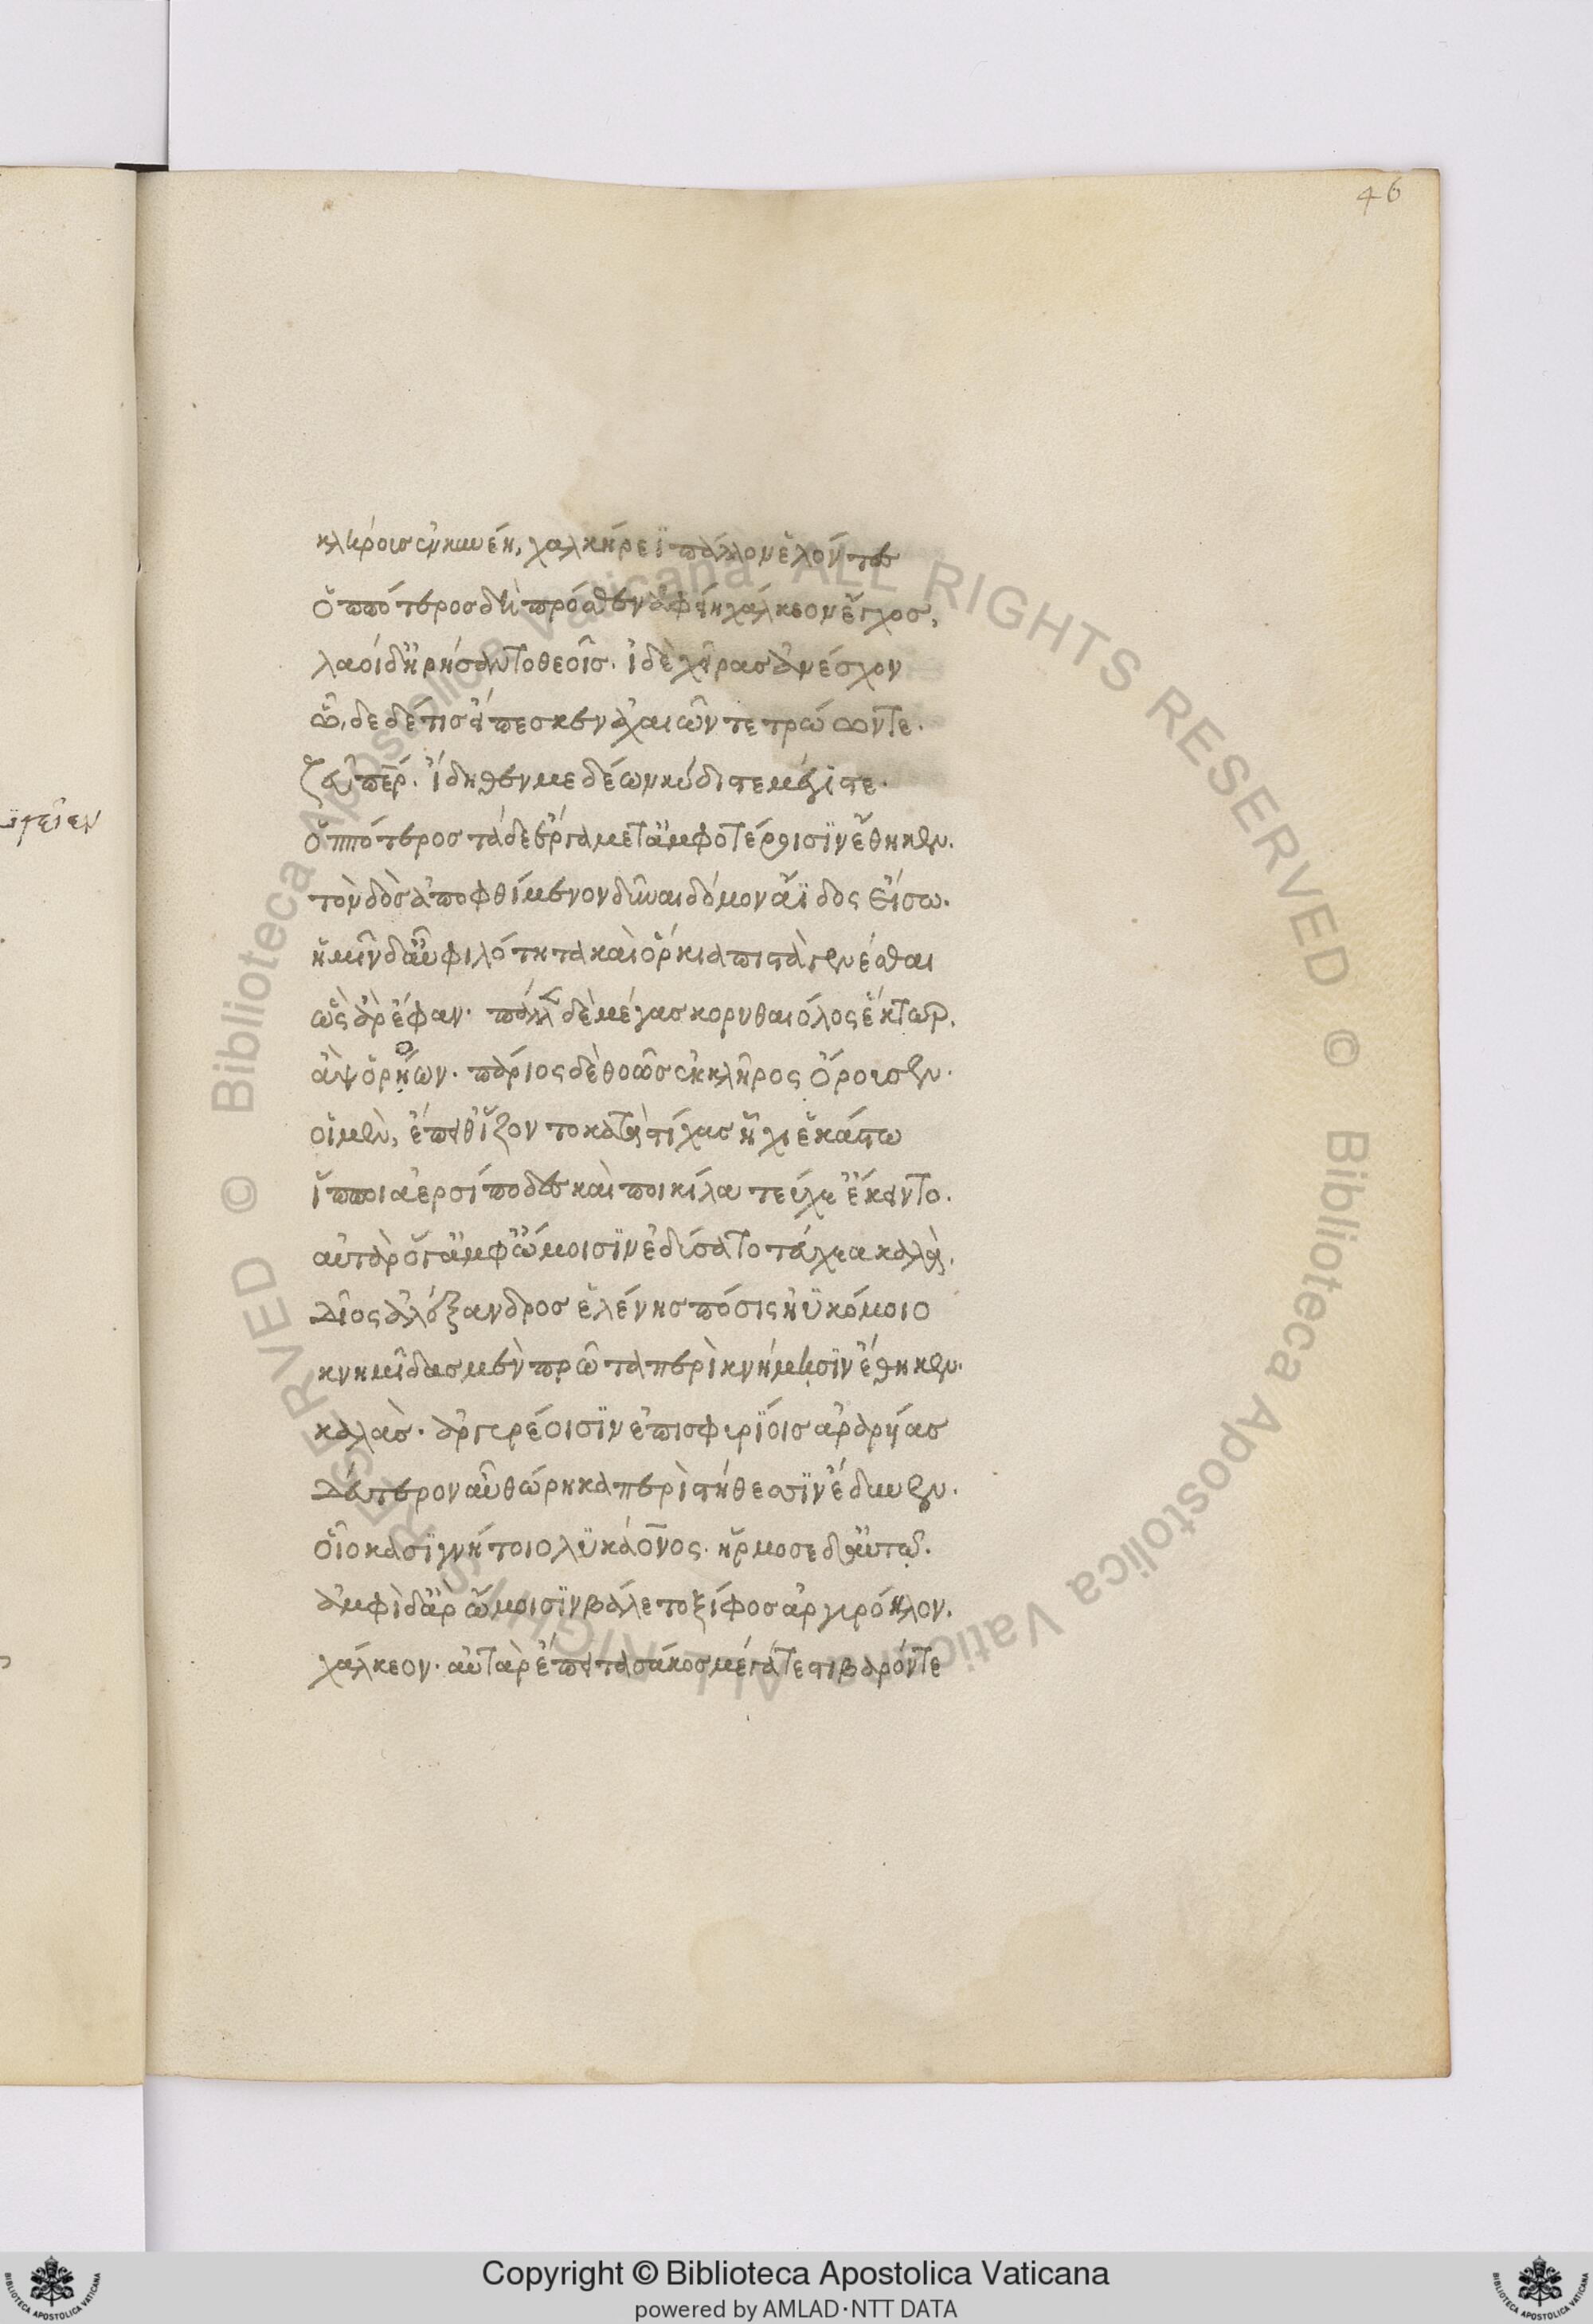 46
κλήροις ἐν κυνέῃ, χαλκήρεϊ πάλλον ἑλόντες
ὁππότερος δὴ πρόσθεν ἀφείη χάλκεον ἔγχος,
λαοὶ δ' ἠρήσαντο θεοῖς. ἰδὲ χεῖρας ἀνέσχον
ὧδε δέ τις εἴπεσκεν ἀχαιῶν τε τρώων τε.
ζεῦ περ. ἴδηθεν μεδέων κύδιστε μέγιστε.
ὁππότερος τάδε ἔργα μετ' ἀμφοτέροισιν ἔθηκεν.
τὸν δὸς ἀποφθίμενον δῦναι δόμον ἄϊδος εἴσω.
ἡμῖν δ' αὖ φιλότητα καὶ ὅρκια πιστὰ γενέσθαι
ὣς ἄρ' ἔφαν. πάλλεν δὲ μέγας κορυθαιόλος ἕκτωρ.
ἂψ ὁρόων. πάριος δὲ θοῶς ἐκ κλῆρος ὄρουσεν.
οἱ μὲν, ἔπειθ' ἵζοντο κατὰ στίχας ἧχι ἑκάστω
ἵπποι ἀερσίποδες καὶ ποικίλα τεύχε' ἔκειντο.
αὐτὰρ ὅγ' ἀμφ' ὤμοισιν ἐδύσατο τεύχεα καλὰ.
δῖος ἀλέξανδρος ἑλένης πόσις ἠϋκόμοιο
κνημῖδας μὲν πρῶτα περὶ κνήμησιν ἔθηκεν.
καλὰς. ἀργυρέοισιν ἐπισφυρίοις ἀραρυίας
δεύτερον αὖ θώρηκα περὶ στήθεσιν ἔδυνεν.
οἷο κασιγνήτοιο λυκάονος. ἥρμοσε δ' αὐτῶ.
ἀμφὶ δ' ἄρ' ὤμοισιν βάλετο ξίφος ἀργυρόηλον.
χάλκεον. αὐτὰρ ἔπειτα σάκος μέγα τε στιβαρόν τε
Copyright © Biblioteca Apostolica Vaticana
powered by AMLAD·NTT DATA